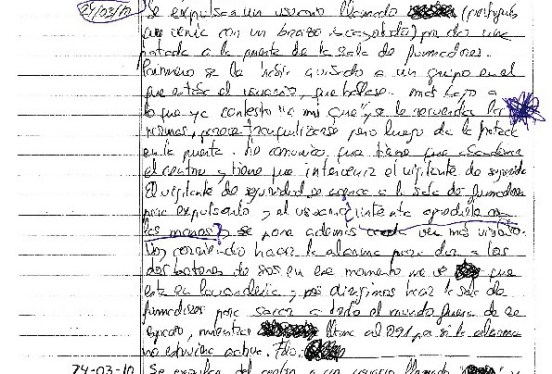 24/03/10 Se expulsa a un usuario llamado (portugués
que venía con un brazo escayolado) por dar una
patada a la puerta de la sala de fumadores.
Primero se la había avisado a un grupo en el
que estaba el usuario, que hablase más bajo a
lo que ya contesto "a mi que", se le recuerdan las
normas, parece tranquilizarse pero luego da la patada
en la puerta. Le comunico que tiene que abandonar
el centro y tiene que intervenir el vigilante de seguridad
El vigilante de seguridad se acerca a la sala de fumadores
para expulsarlo y el usuario (intenta
las manos) se pone además cada vez más
hacia la alarma para dar a los
dos botones de sos en ese momento me ve que
esta en lavandería y nos dirigimos hacia la sala de
fumadores para sacar a todo el mundo fuera de ese
espacio, mientras llama al 091 por si la alarma
no estuviera activa. Fdo:
24-03-10 Se expulsa del centro a un usuario llamado y